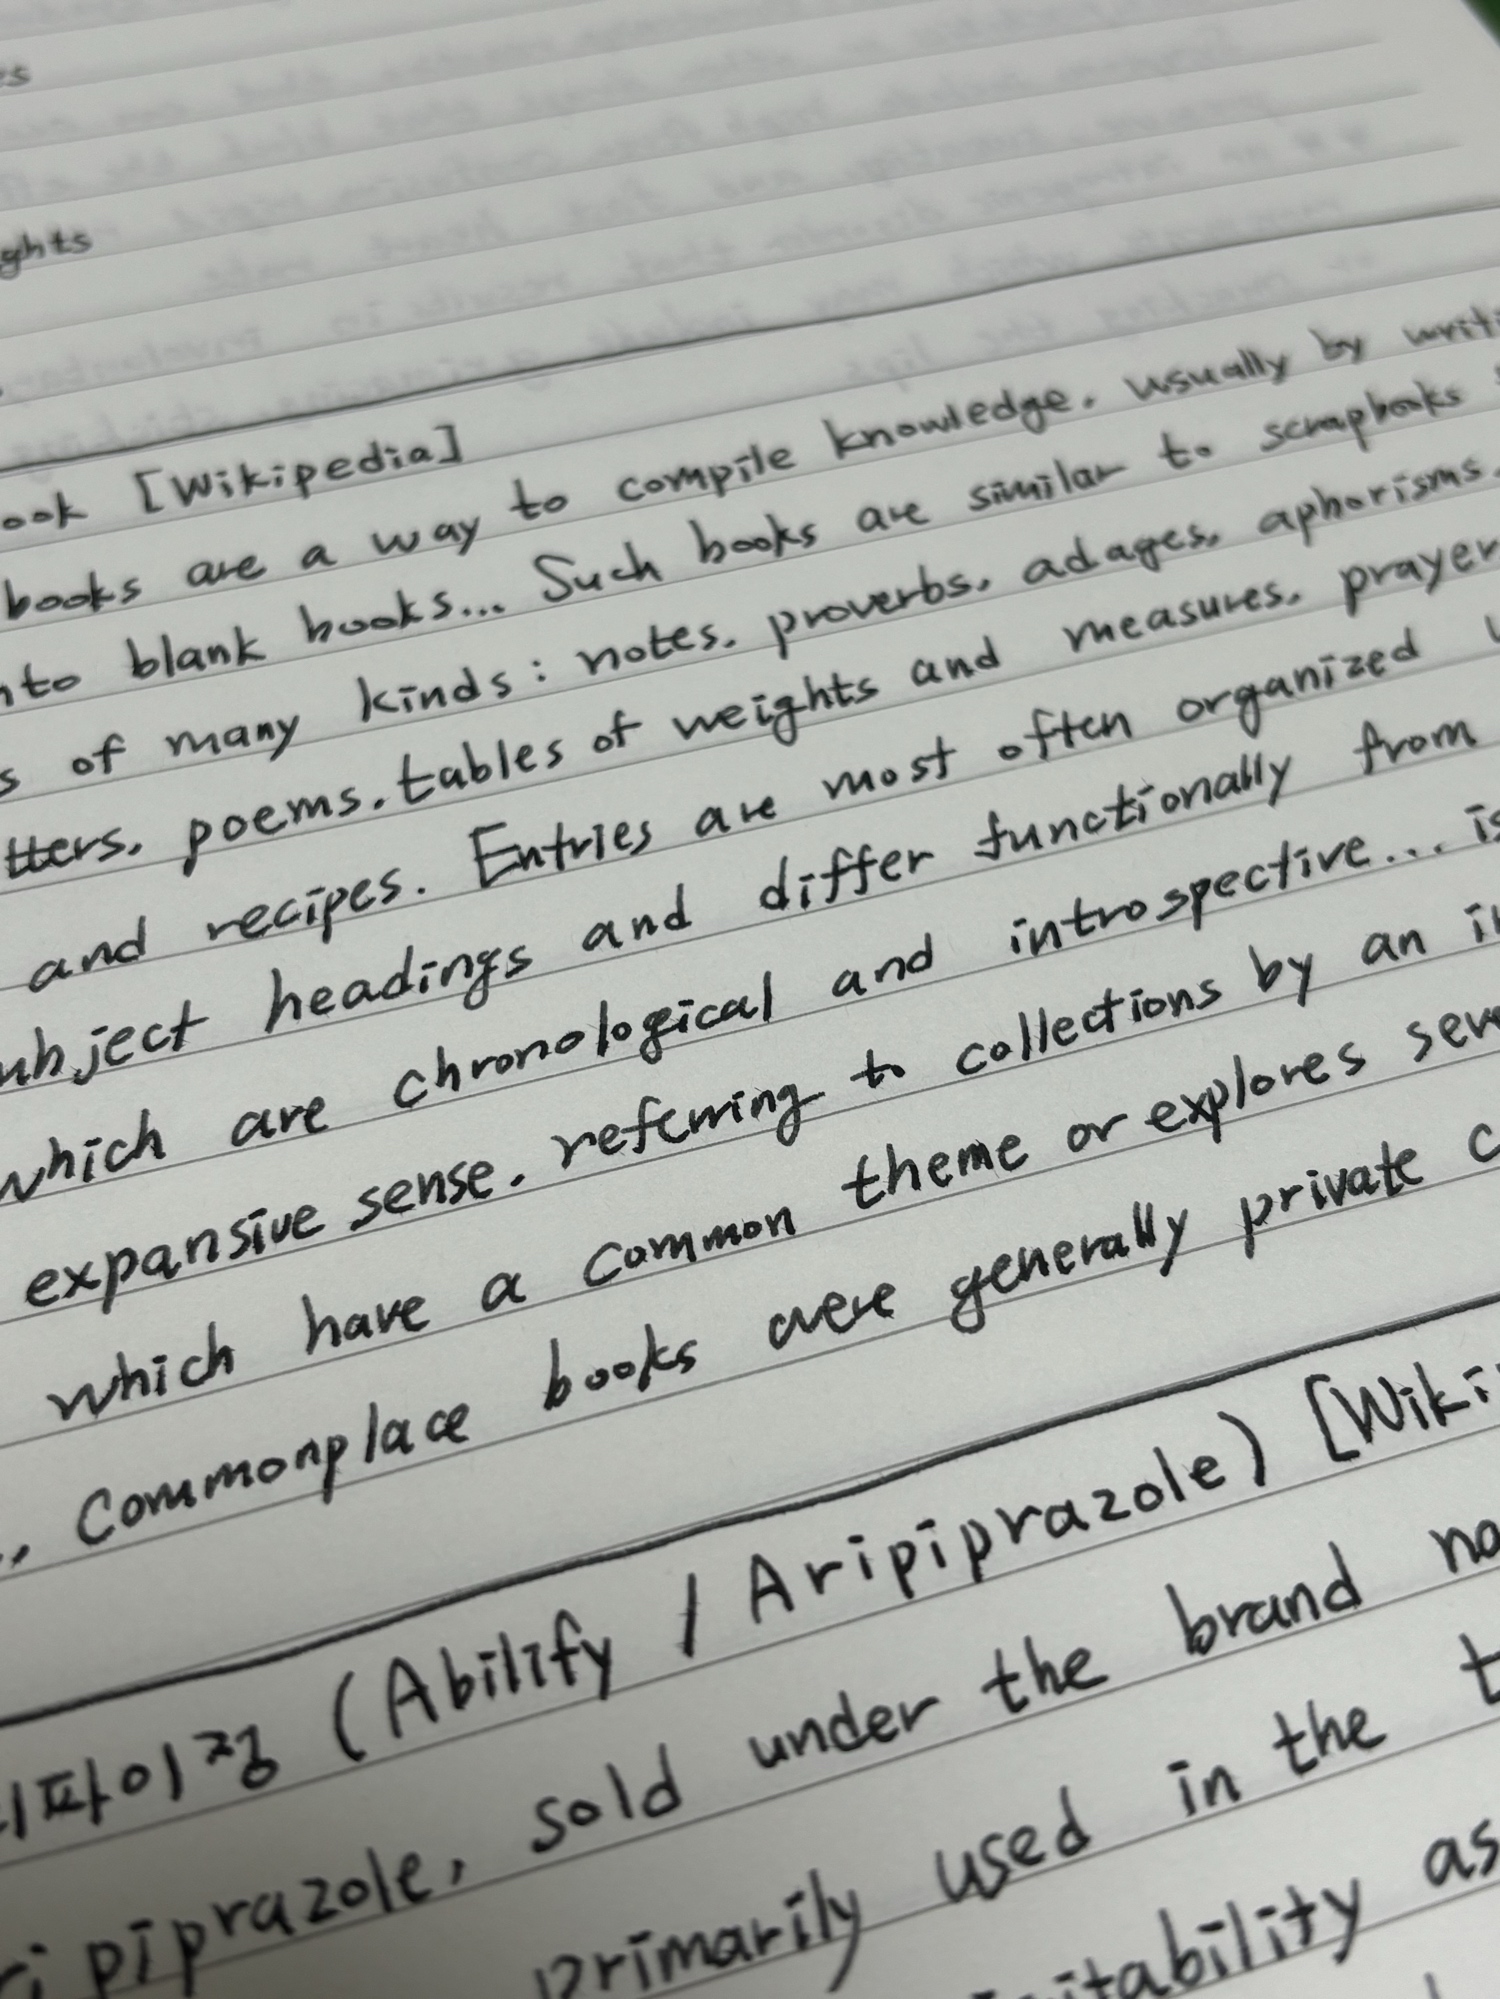 ook [Wikipedia]
books are a way to compile knowledge, usually by writi
nto blank books... Such books are similar to scrapbooks
s of many kinds: notes, proverbs, adages, aphorisms,
tters, poems, tables of weights and measures, prayer
and recipes. Entries are most often organized
ubject headings and differ functionally from
which are chronological and introspective... is
expansive sense, referring to collections by an in
which have a common theme or explores seve
., Commonplace books were generally private c
리파이정 (Abilify / Aripiprazole) [Wiki
ripiprazole, sold under the brand na
primarily used in the t
itability as